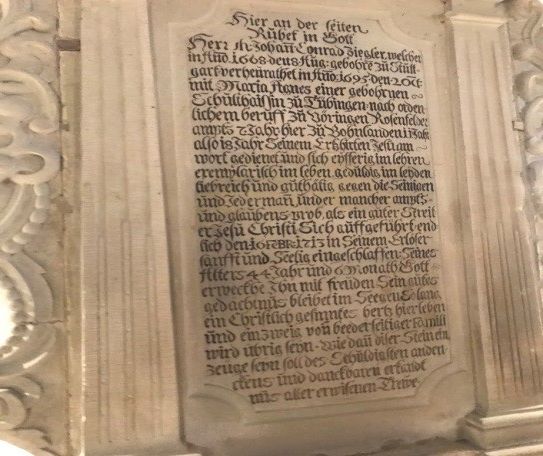 Hier an der seiten
Ruhet in Gott
Herr M. Johann Conrad Ziegler, welcher
in Año. 1668 den 8 Aug: gebohrē zu Stutt-
gart verheurathet in Año. 1695 den 2 Oct:
mit Maria Agnes einer gebohrnen
Schultheissin zu Tübingen nach orden
lichem beruff zu Vöringen Rosenfelder
ampts 7 Jahr hier zu Bohnlanden 11 Jahr
also 18 Jahr Seinem Ertzhirten Jesu am
wort gedienet und sich eyfferig im lehren
exemplarisch im leben, gedultig im leyden
liebreich und guthätig gegen die Seinigen
und Jederman, under mancher ampts-
und glaubens prob, als ein guter Streit
er Jesu Christi Sich auffgeführt end
lich den 1713 in Seinem Erlöser
sanfft und Seelig eingeschlaffen Seines
Alters 44 Jahr und 6 Monath Gott
erwecke Ihn mit freuden Sein gutes
gedächtnus bleibet im Seegen Solang
ein Christlich gesinntes hertz hier leben
und ein zweig von beederseitiger Famili
wird übrig seyn. Wie dañ diser Stein ein
zeuge seyn soll des Schuldigsten anden-
ckens und danckbaren erkant
nus aller erwisenen Trewe